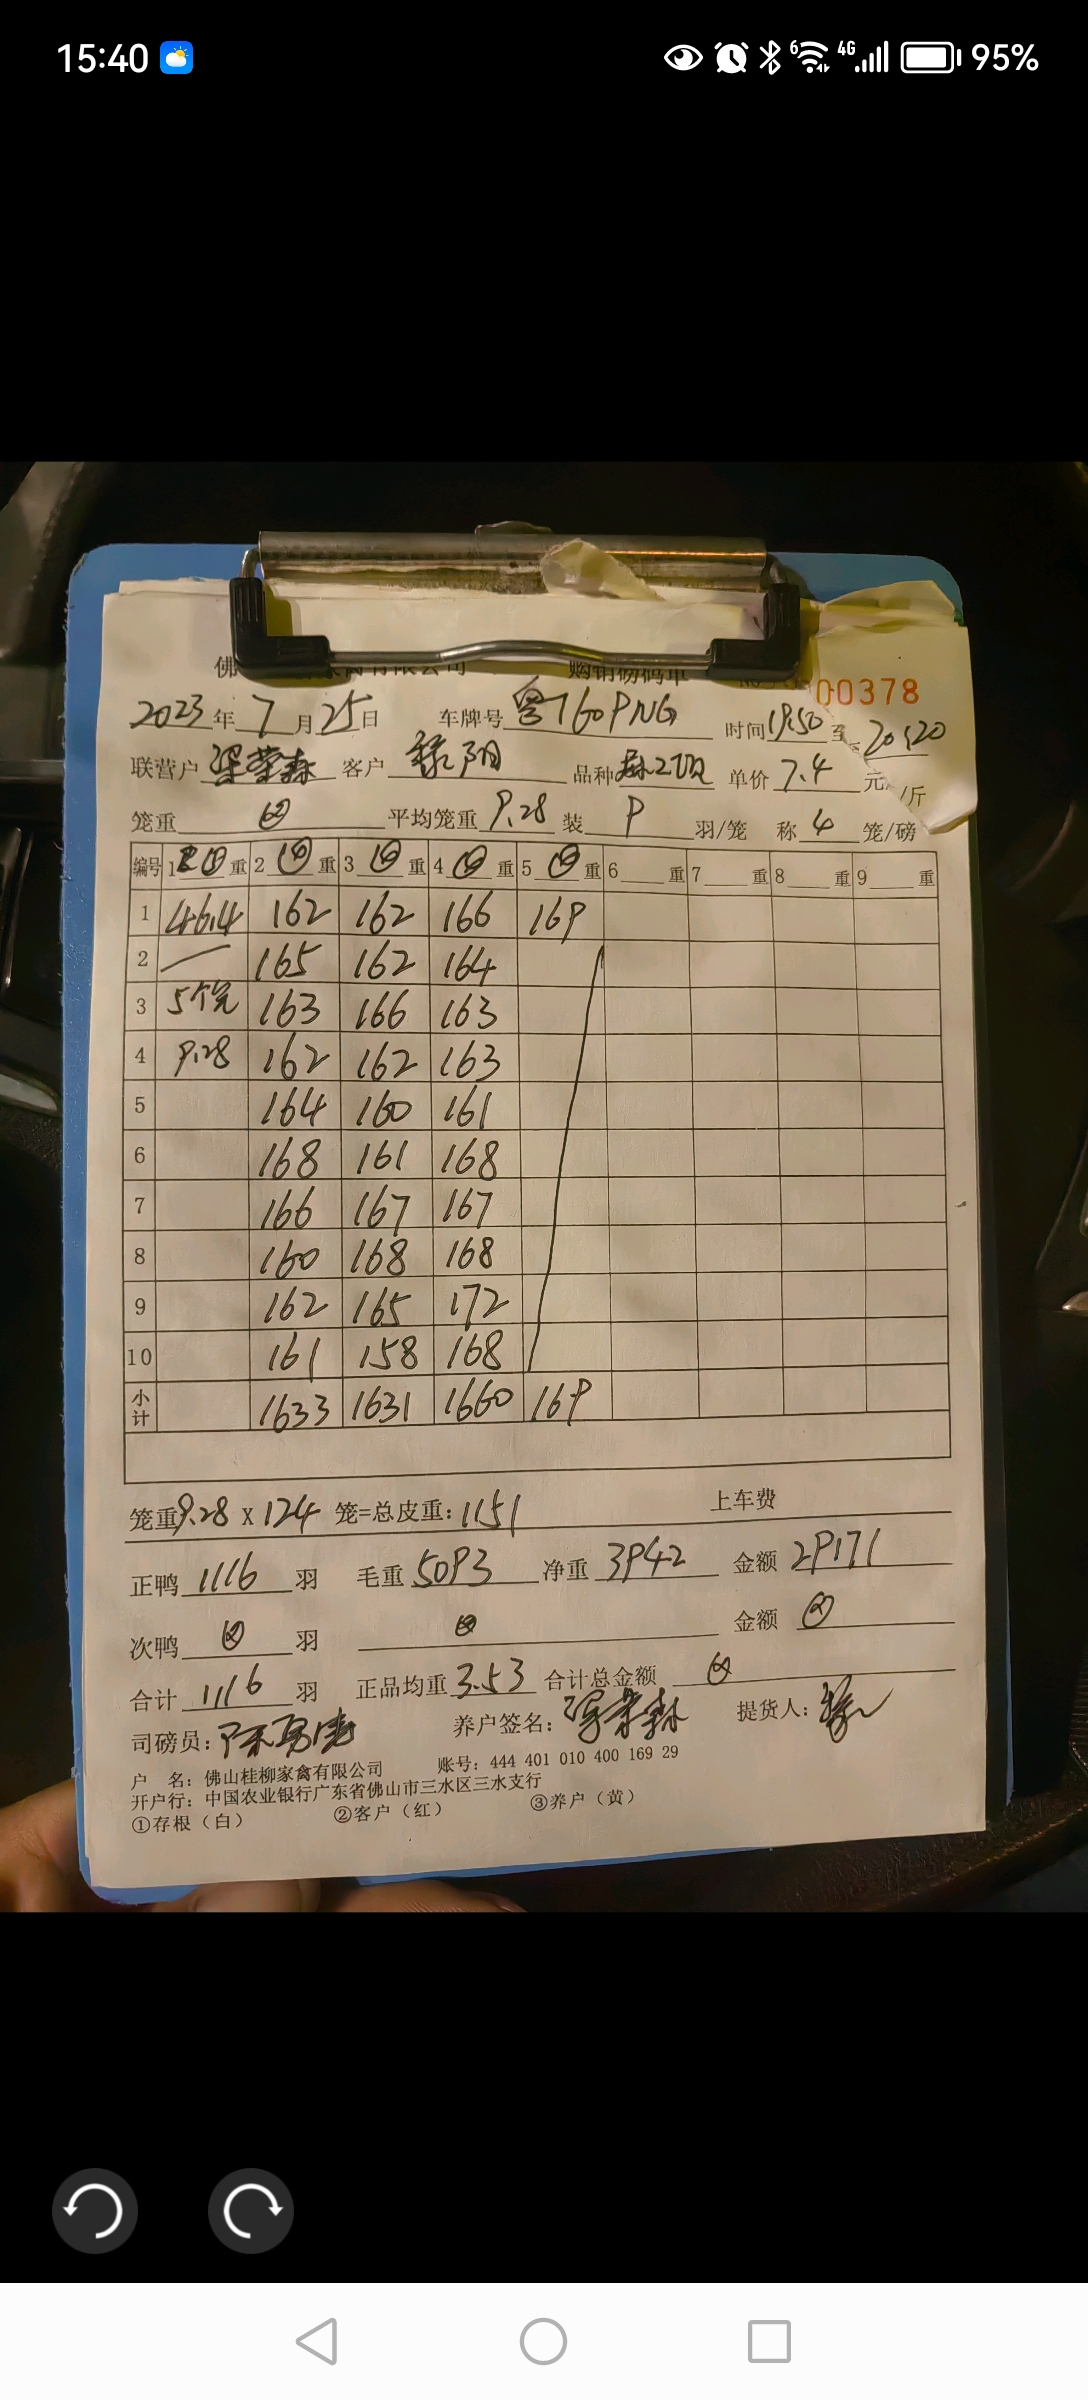 15:40 6 4G 95%
佛 有限公司 购销磅码单 00378
2023年7月25日 车牌号粤T60PNG 时间19:50至20:20
联营户梁荣森 客户 阳 品种 单价7.4元/斤
笼重⊘ 平均笼重9.28装9羽/笼 称4笼/磅
编号 1⊘重 2⊘重 3⊘重 4⊘重 5⊘重 6重 7重 8重 9重
1 46.4 162 162 166 169
2 — 165 162 164
3 5个完 163 166 163
4 9.28 162 162 163
5 164 160 161
6 168 161 168
7 166 167 167
8 160 168 168
9 162 165 172
10 161 158 168
小计 1633 1631 1660 169
笼重9.28X124笼=总皮重:1151 上车费
正鸭1116羽 毛重5093 净重3942 金额29171
次鸭⊘羽 ⊘ 金额⊘
合计1116羽 正品均重3.53 合计总金额⊘
司磅员: 养户签名:梁荣森 提货人:
户 名:佛山桂柳家禽有限公司 账号:444 401 010 400 169 29
开户行:中国农业银行广东省佛山市三水区三水支行
①存根(白) ②客户(红) ③养户(黄)